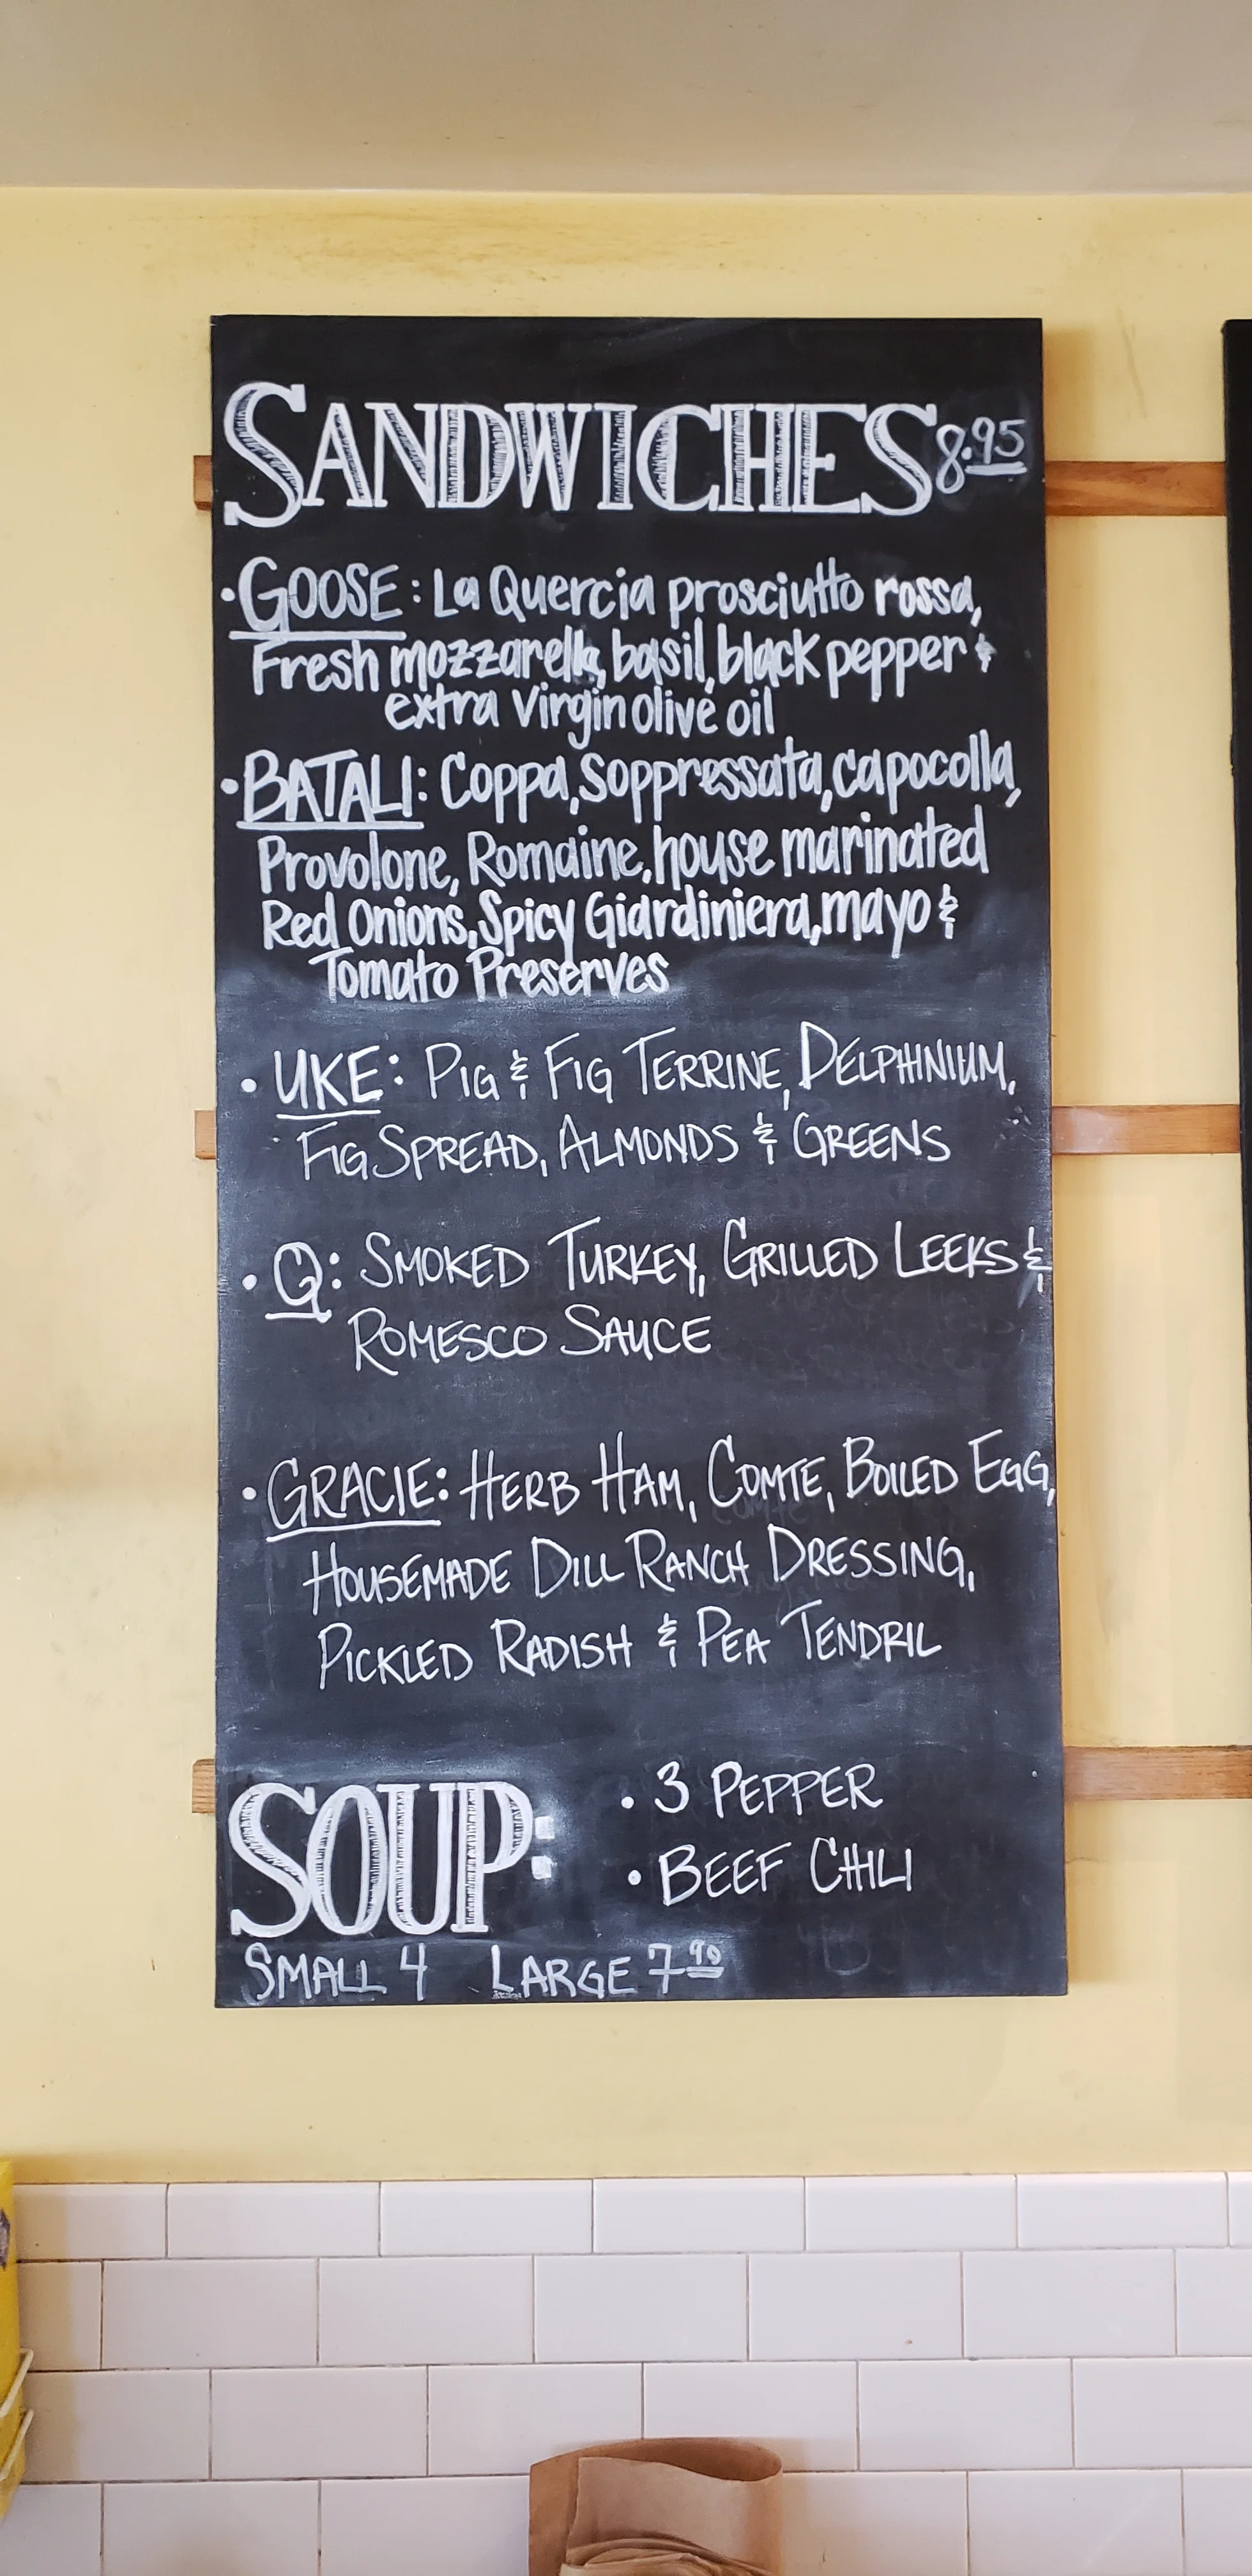 SANDWICHES 8.95
• GOOSE: La Quercia prosciutto rossa,
Fresh mozzarella, basil, black pepper &
extra virgin olive oil
• BATALI: Coppa, Soppressata, capocolla,
Provolone, Romaine, house marinated
Red Onions, Spicy Giardiniera, mayo &
Tomato Preserves
• UKE: PIG & FIG TERRINE, DELPHINIUM,
FIG SPREAD, ALMONDS & GREENS
• Q: SMOKED TURKEY, GRILLED LEEKS &
ROMESCO SAUCE
• GRACIE: HERB HAM, COMTE, BOILED EGG,
HOUSEMADE DILL RANCH DRESSING,
PICKLED RADISH & PEA TENDRIL
SOUP:
• 3 PEPPER
• BEEF CHILI
SMALL 4 LARGE 7.90